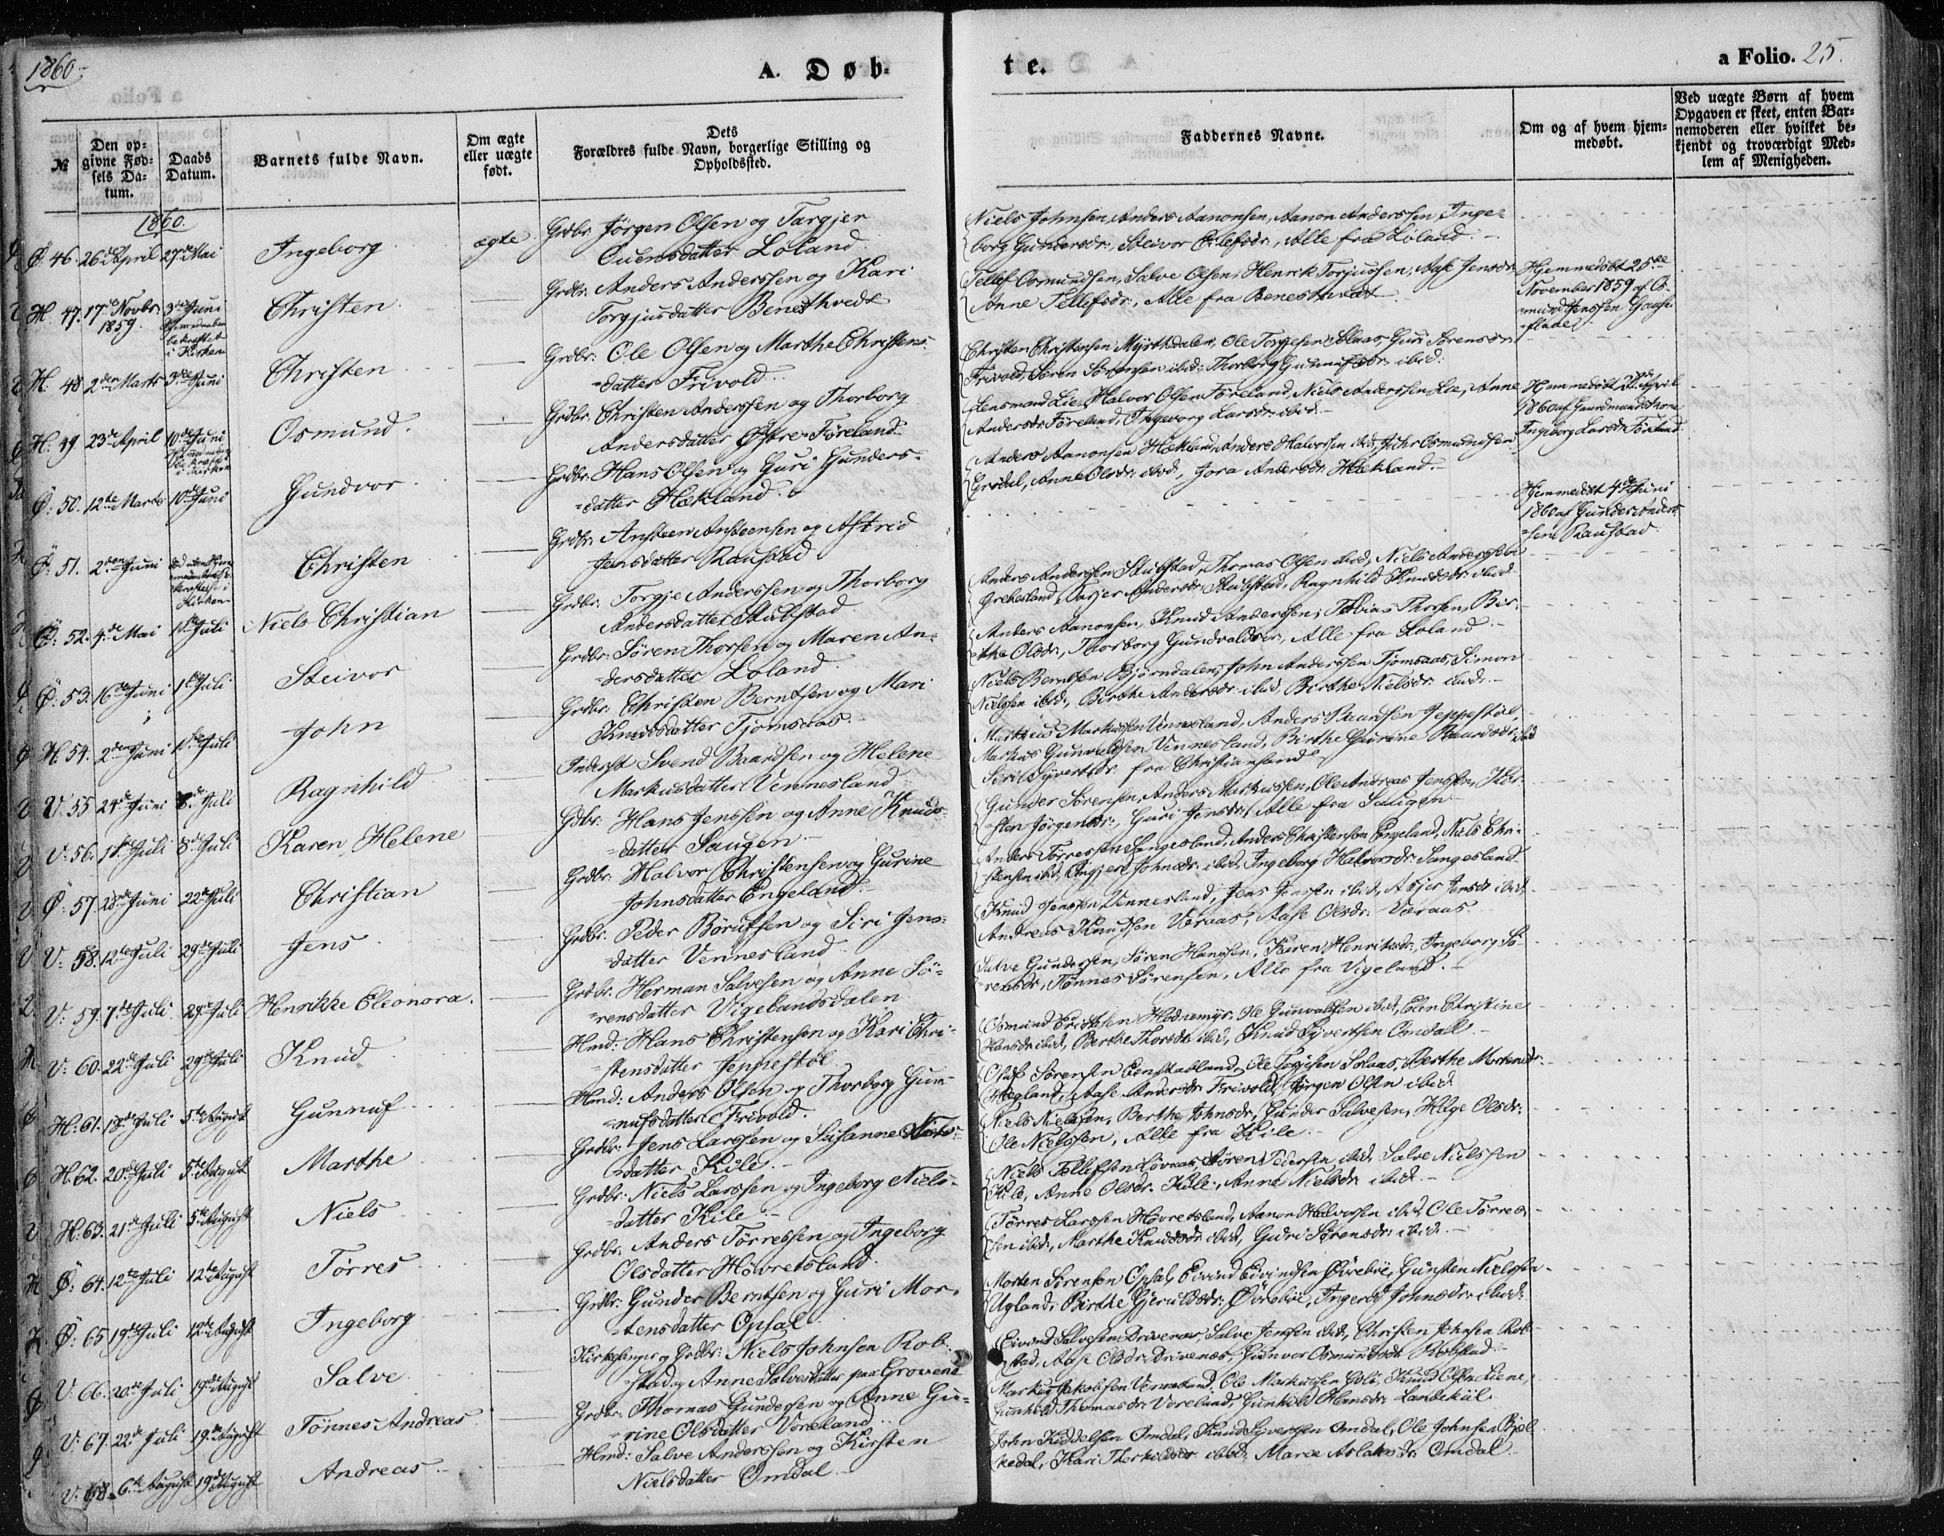 1860.
A. Døb-
te.
a Folio. 25.
No
Den op-
givne Fød-
sels Da-
tum.
Daabs
Datum.
Barnets fulde Navn.
Om ægte
eller uægte
født.
Dets
Forældres fulde Navn, borgerlige Stilling og
Opholdssted.
Faddernes Navne.
Om og af hvem hjem-
medøbt.
Ved uægte Børn af hvem
Opgaven er skeet, enten Bar-
nemoderen eller hvilket be-
kjendt og troværdigt Med-
lem af Menigheden.
1860.
Ø. 46. 26de April 27de Mai Ingeborg ægte Grdbr: Jørgen Olsen og Targjer
Euensdatter Loland.
Niels Johnsen, Anders Aanonsen, Aanon Anderssen, Inge-
borg Gundersdr:, Steivor Eilefsdr:, Alle fra Loland.
H. 47. 17de Novbr: 1859. 3die Juni Christen Grdbr: Anders Anderssen og Kari
i Kirken
Torgjusdatter Benestvedt
Tellef Osmundsen, Salve Olsen, Henrik Torjussen, Aase Jensdr:
Anne Tellefsdr:, Alle fra Benestvedt
Hjemmedøbt 25de
November 1859 af Os-
mund Jenssen Gaase-
flaae.
H. 48. 2den Marts 3die Juni Christen Grdbr: Ole Olsen og Marthe Christens-
datter Frivold.
Christen Christensen Myrthdalen, Ole Torgjesen Solaas, Guri Sørensdr:
Frivold, Søren Sørensen ibid: Thorborg Gunnufsdr: ibid:
H. 49. 23de April 10de Juni Osmund. Grdbr: Christen Anderssen og Thorborg
i Kirken
Andersdatter Østre-Føreland.
Lensmand Lie, Halvor Olsen Føreland, Niels Anderssen Lie, Anne
Andersdr: Føreland, Ingeborg Larsdr: ibid.
Hjemmedøbt April
1860 af Gaardmandskone
Ingeborg Larsdr: Føreland.
Ø. 50. 12te Marts 10de Juni Gundvor Grdbr: Hans Olsen og Guri Gunders-
datter Hækland.
Anders Aanonsen Hækland, Anders Halvorsen ibid, Osmundsen
Anne Olsdr: ibid, Jora Andersdr: Hækland.
Ø. 51. 2den Juni Christen Grdbr: Ansteen Ansteensen og Astrid
Jensdatter Raustad
Hjemmedøbt 4de Juni
1860 af Gunder Anders-
sen Raustad.
Ø. 52. 4de Mai 1ste Juli Niels Christian Grdbr: Torgje Anderssen og Thorborg
Andersdatter Stubstad.
Anders Anderssen Stubstad, Thomas Olsen ibid, Niels Anderssen
Grebesland, Targjer Andersdr: Stubstad, Ragnhild Knudsdr: ibid.
Ø. 53. 16de Juni 1ste Juli Steivor Grdbr: Søren Thorsen og Maren An-
dersdatter Loland
Anders Aanonsen, Knud Anderssen, Tobias Thorsen, Bir-
the Olsdr:, Thorborg Gundvaldsdr:, Alle fra Loland.
H. 54. 2den Juni 1ste Juli John Grdbr: Christen Berntsen og Mari
Knudsdatter Tjomsaas.
Niels Berntsen Bjørndalen, John Anderssen Tjomsaas, Simon
Nielssen ibid, Birthe Andersdr: ibid, Birthe Nielsdr: ibid.
V. 55 24de Juni 8de Juli Ragnhild Inderst Svend Baardsen og Helene
Markusdatter Vennesland
Matheus Markussen Vennesland, Anders Jeppestøl,
Markus Gunvaldsen Vennesland, Birthe Gurine Baardsdr: ibid
Siri Syvertsdr: fra Christiansand
V. 56. 1ste Juli 8de Juli Karen Helene Gdbr: Hans Jenssen og Anne Knuds-
datter Saugen.
Gunder Sørensen, Anders Markussen, Ole Andreas Jenssen, Kir-
sten Jørgensdr:, Guri Jensdr:, Alle fra Saugen
Ø. 57 28de Juni 22de Juli Christian Grdbr: Halvor Christensen og Gurine
Johnsdatter Engeland.
Anders Tørressen Sangesland, Anders Christensen Engeland, Niels Chri-
stensen ibid, Johnsdr: ibid, Ingeborg Halvorsdr: Sangesland
V. 58. 12te Juli 29de Juli Jens Grdbr: Peder Børufsen og Siri Jens-
datter Vennesland.
Knud Jenssen Vennesland, Jens Jenssen ibid, Jensdr: ibid,
Andreas Knudsen Væraas, Aase Olsdr: Væraas.
V. 59. 7de Juli 29de Juli Henrikke Eleonora. Grdbr: Herman Salvesen og Anne Sø-
rensdatter Vigelandsdalen
Salve Gundersen, Søren Hanssen, Karen Henriksdr:, Ingeborg Sø-
rensdr:, Tønnes Sørensen, Alle fra Vigeland.
V. 60. 22de Juli 29de Juli Knud Hmd: Hans Christensen og Kari Chri-
stensdatter Jeppestøl
Osmund Eriksen Ole Gunvaldsen ibid, Elen Christine
Hansdr: ibid, Berthe Thorsdr: ibid, Knud Syvertsen Omdal.
H. 61. 18de Juli 5te August Gunnuf Hmd: Anders Olsen og Thorborg Gun-
nufsdatter Frivold.
Sørensen Eenstabland, Ole Torgjesen Solaas, Berthe Mortensdr:
Aase Andersdr: Frivold, Jørgen Olsen ibid
H. 62. 20de Juli 5te August Marthe Grdbr: Jens Larssen og Susanne Niels-
datter Kile.
Niels Nielssen, Berthe Johnsdr:, Gunder Salvesen, Helge Olsdr:
Ole Nielssen, Alle fra Kile.
H. 63. 21de Juli 5te August Niels Grdbr: Niels Larssen og Ingeborg Niels-
datter Kile
Niels Tellefsen Løvaas, Søren Pedersen ibid, Salve Nielssen
Kile, Anne Olsdr: Kile, Anne Nielsdr: ibid.
Ø. 64. 12te Juli 12te August Tørres Grdbr: Anders Tørressen og Ingeborg
Olsdatter Høvretsland
Tørres Larssen Høvretsland, Aanon Halvorsen ibid, Ole Tørres-
sen ibid, Marthe Knudsdr: ibid, Guri Sørensdr: ibid.
Ø. 65 19de Juli 12te August Ingeborg Grdbr: Gunder Berntsen og Guri Mor-
tensdatter Opsal
Morten Sørensen Opsal, Eivind Eivindsen Øvrebø, Gunsten Nielssen
Ugland, Birthe Gjeruldsdr: Øvrebø, Ingerd Johnsdr: ibid:
V. 66. 20de Juli 19de August Salve Kirkesanger og Grdbr: Niels Johnsen Rob-
stad og Anne Salvesdatter paa Grovene
Eivind Salvesen Drivenes, Salve Jenssen ibid, Christen Johnsen Rob-
stad, Aase Olsdr: Drivenes, Gunvor Osmundsdr: Robstad
V. 67. 22de Juli 19de August Tønnes Andreas Grdbr: Thomas Gundersen og Anne Gu-
rine Olsdatter Voreland.
Markus Jakobsen Vennesland, Ole Markussen Knud Olsen
Gunhild Thomasdr: Voreland, Gunhild Hansdr: Landekiil
V. 68. 6te August 19de August Andreas Hmd: Salve Anderssen og Kirsten
Nielsdatter Omdal.
John Kiddelsen Omdal, Knud Syversen Omdal, Ole Johnsen Bjel-
kedal, Kari Thorkildsdr: ibid, Marie Aslaksdr: Omdal